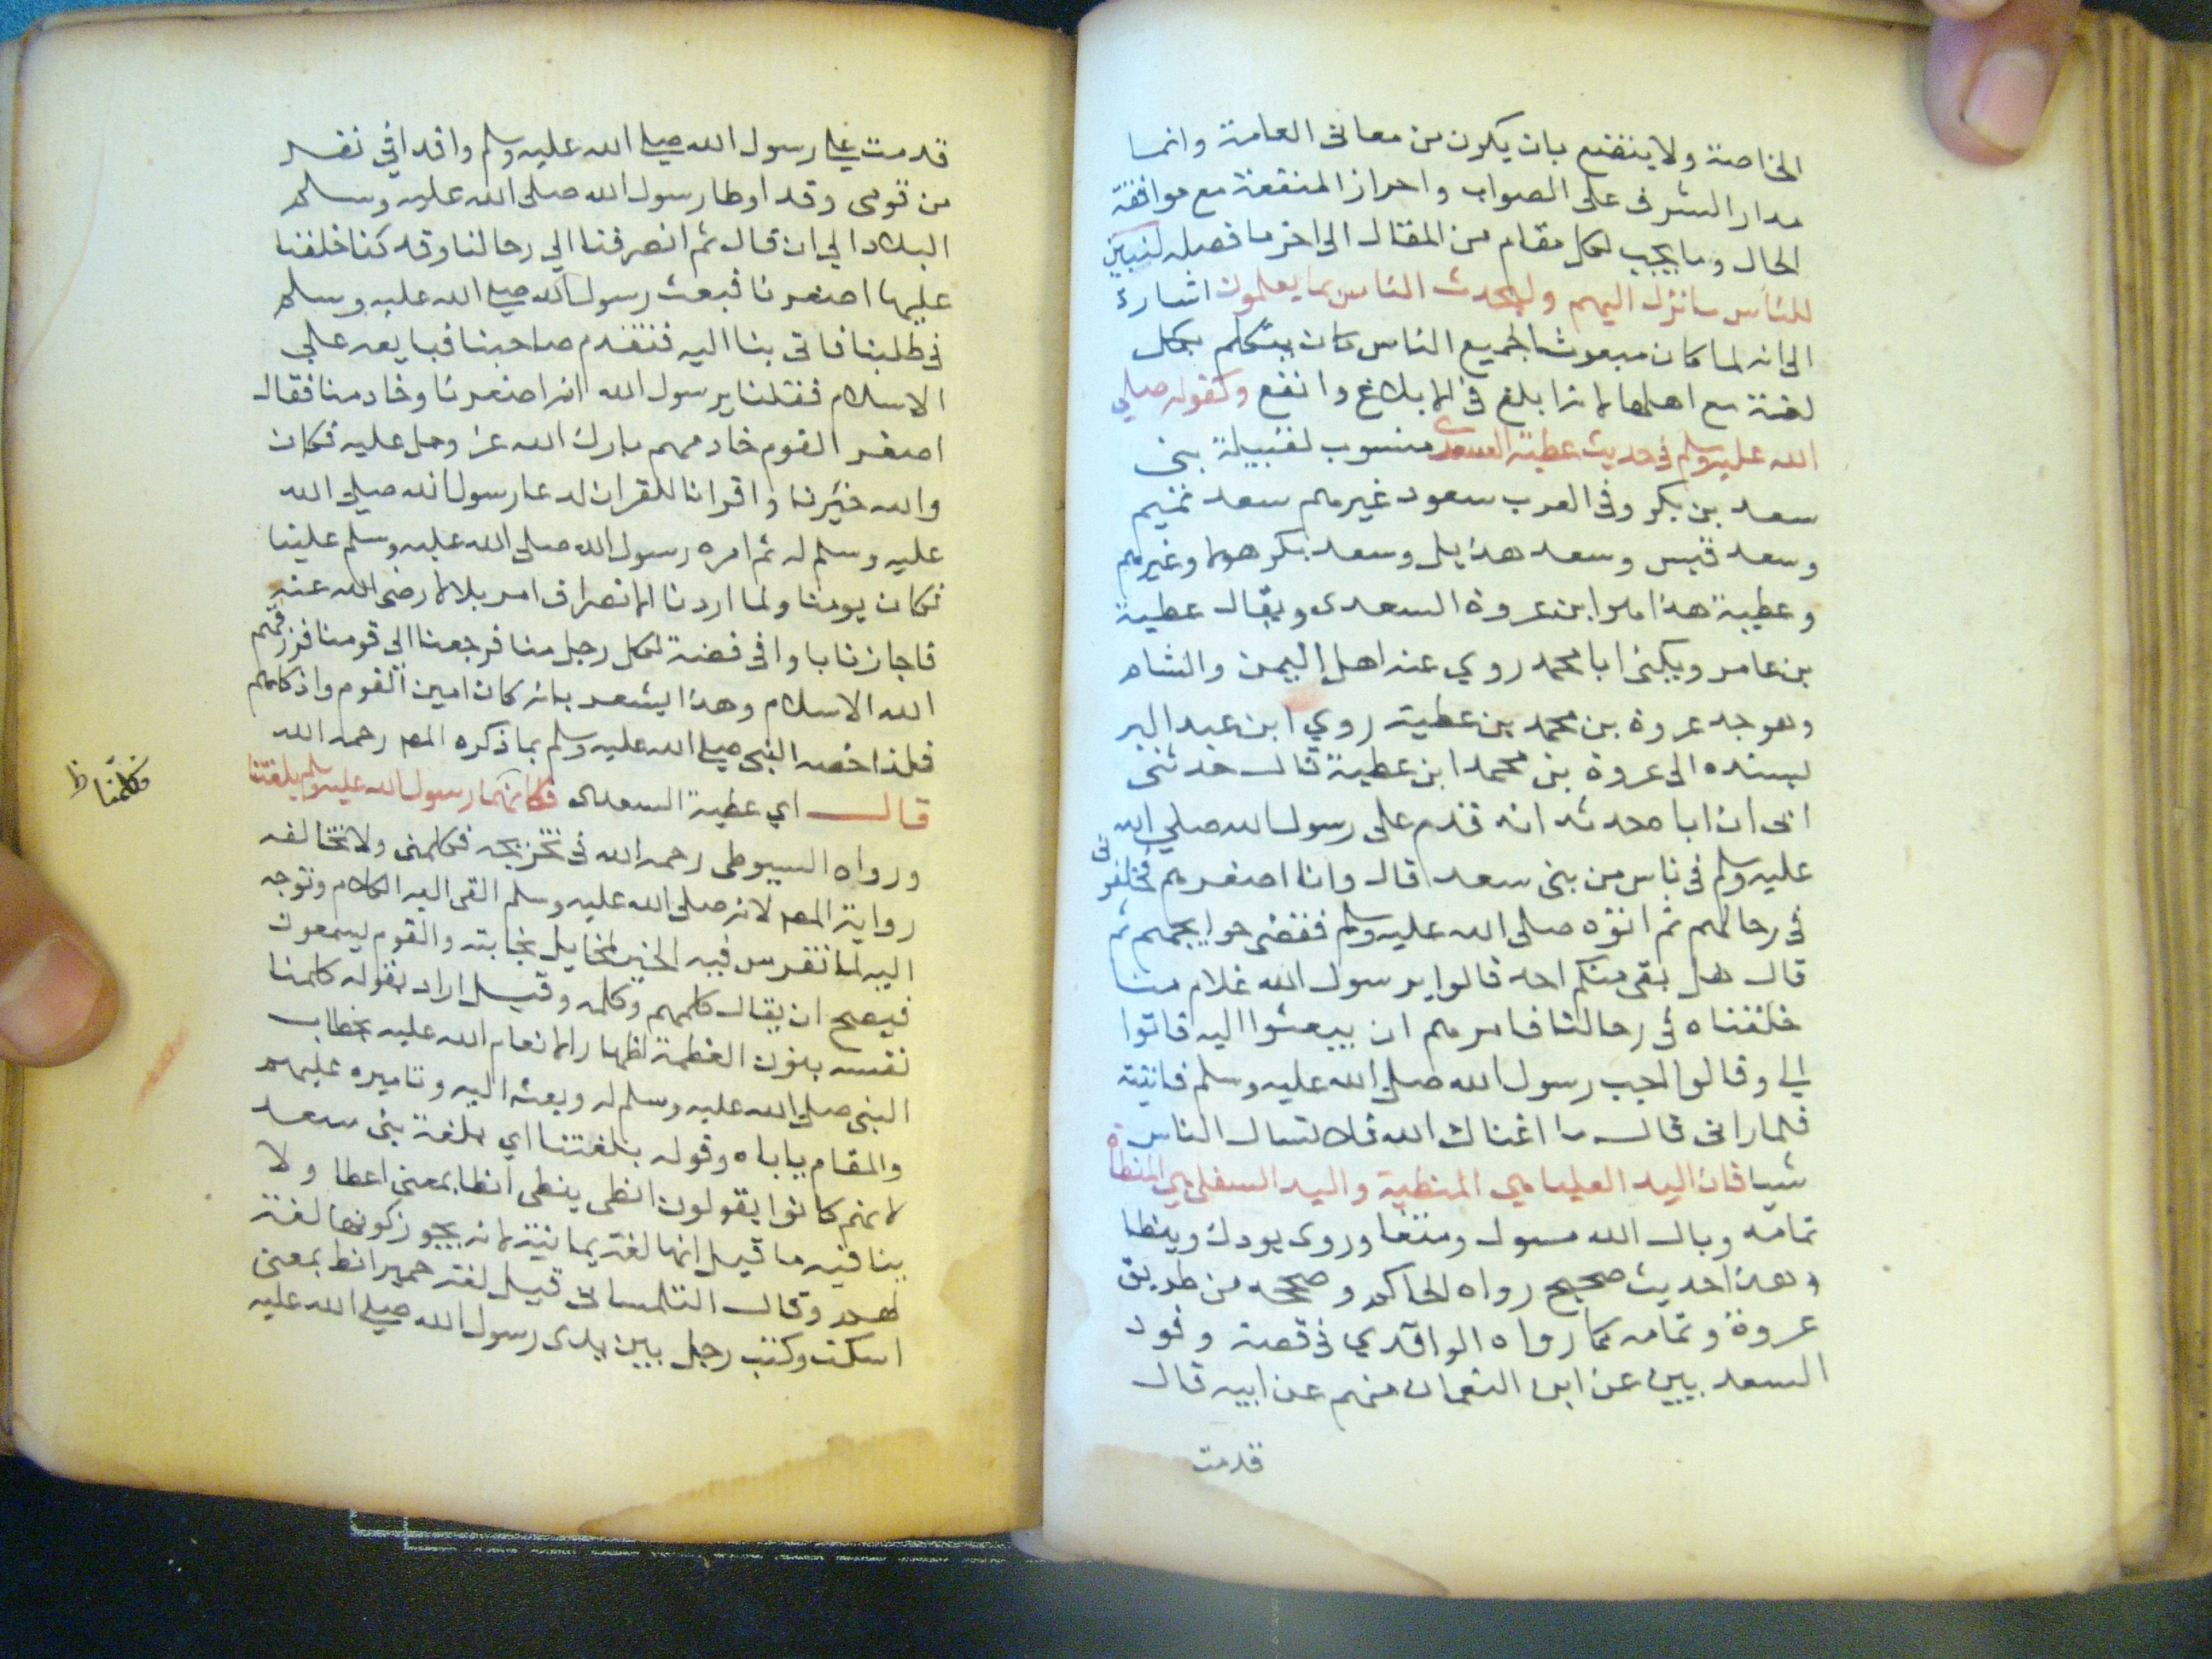 الخاصة ولا يتضع بان يكون من معانى العامة وانما
مدار الشرف على الصواب واحراز المنفعة مع موافقة
الحال وما يجب لكل مقام من المقال الى اخر ما فصله لتبين
للناس ما نزل اليهم وليحدث الناس بما يعلمون اشارة
الى انه لما كان مبعوثا لجميع الناس كان يتكلم بكل
لغة مع اهلها لانه ابلغ فى الابلاغ وانفع وكقوله صلى
الله عليه وسلم فى حديث عطية السعدى منسوب لقبيلة بنى
سعد بن بكر وفى العرب سعود غيرهم سعد تميم
وسعد قيس وسعد هذيل وسعد بكر هولا وغيرهم
وعطية هذا هو ابن عروة السعدى ويقال عطية
بن عامر ويكنى ابا محمد روي عنه اهل اليمن والشام
وهو جد عروة بن محمد بن عطية روي ابن عبد البر
بسنده الى عروة بن محمد ابن عطية قال حدثنى
ابى ان اباه حدثه انه قدم على رسول الله صلى الله
عليه وسلم فى ناس من بنى سعد قال وانا اصغرهم فخلفونى
فى رحالهم ثم اتوه صلى الله عليه وسلم فقضى حوايجهم ثم
قال هل بقى منكم احد قالوا يرسول الله غلام منا
خلفناه فى رحالنا فامرهم ان يبعثوا اليه فاتوا
الي وقالوا اجب رسول الله صلى الله عليه وسلم فاتيته
فلما رانى قال ما اغناك الله فلا تسال الناس
شيا فان اليد العليا هي المنطية واليد السفلى هي المنطاة
تمامه ومال الله مسول ومنطا وروى يودك وينطا
وهذا حديث صحيح رواه الحاكم وصححه من طريق
عروة وتمامه كما رواه الواقدي فى قصة وفود
السعديين عن ابن النعمان منهم عن ابيه قال
قدمت
قدمت على رسول الله صلى الله عليه وسلم وافدا فى نفر
من قومى وقد اوطا رسول الله صلى الله عليه وسلم
البلاد الي ان قال ثم انصرفنا الي رحالنا وقد كنا خلفنا
عليها اصغرنا فبعث رسول الله صلى الله عليه وسلم
فى طلبنا فاتى بنا اليه فتقدم صاحبنا فبايعه علي
الاسلام فقلنا يرسول الله انه اصغرنا وخادمنا فقال
اصغر القوم خادمهم بارك الله عز وجل عليه فكان
والله خيرنا واقرانا للقران لدعا رسول الله صلى الله
عليه وسلم له ثم امره رسول الله صلى الله عليه وسلم علينا
فكان يومنا ولما اردنا الانصراف امر بلالا رضى الله عنه
فاجازنا باواقى فضة لكل رجل منا فرجعنا الى قومنا فرزقهم
الله الاسلام وهذا يشعر بانه كان امين القوم واذكاهم
فلذا خصه النبى صلى الله عليه وسلم بما ذكره المص رحمه الله
قال اي عطية السعدى فكانها رسول الله عليه وسلم بلغتنا
فكلمنا ظ
ورواه السيوطى رحمه الله فى تخريجه فكلمنى ولا تخالفه
رواية المص لانه صلى الله عليه وسلم القى اليه الكلام وتوجه
اليه لما تفرس فيه الخير لمخايل نجابته والقوم يسمعون
فيصح ان يقال كلمهم وكلمه وقيل اراد بقوله كلمنا
نفسه بنون العظمة اظهارا لانعام الله عليه بخطاب
النبى صلى الله عليه وسلم له وبعثه اليه وتاميره عليهم
والمقام ياباه وقوله بلغتنا اي بلغة بنى سعد
لانهم كانوا يقولون انطى ينطى انطا بمعنى اعطا ولا
ينافيه ما قيل انها لغة يمانية لانه يجوز كونها لغة
لهم وقال التلمسانى قيل لغة حمير انط بمعنى
اسكت وكتب رجل بين يدى رسول الله صلى الله عليه